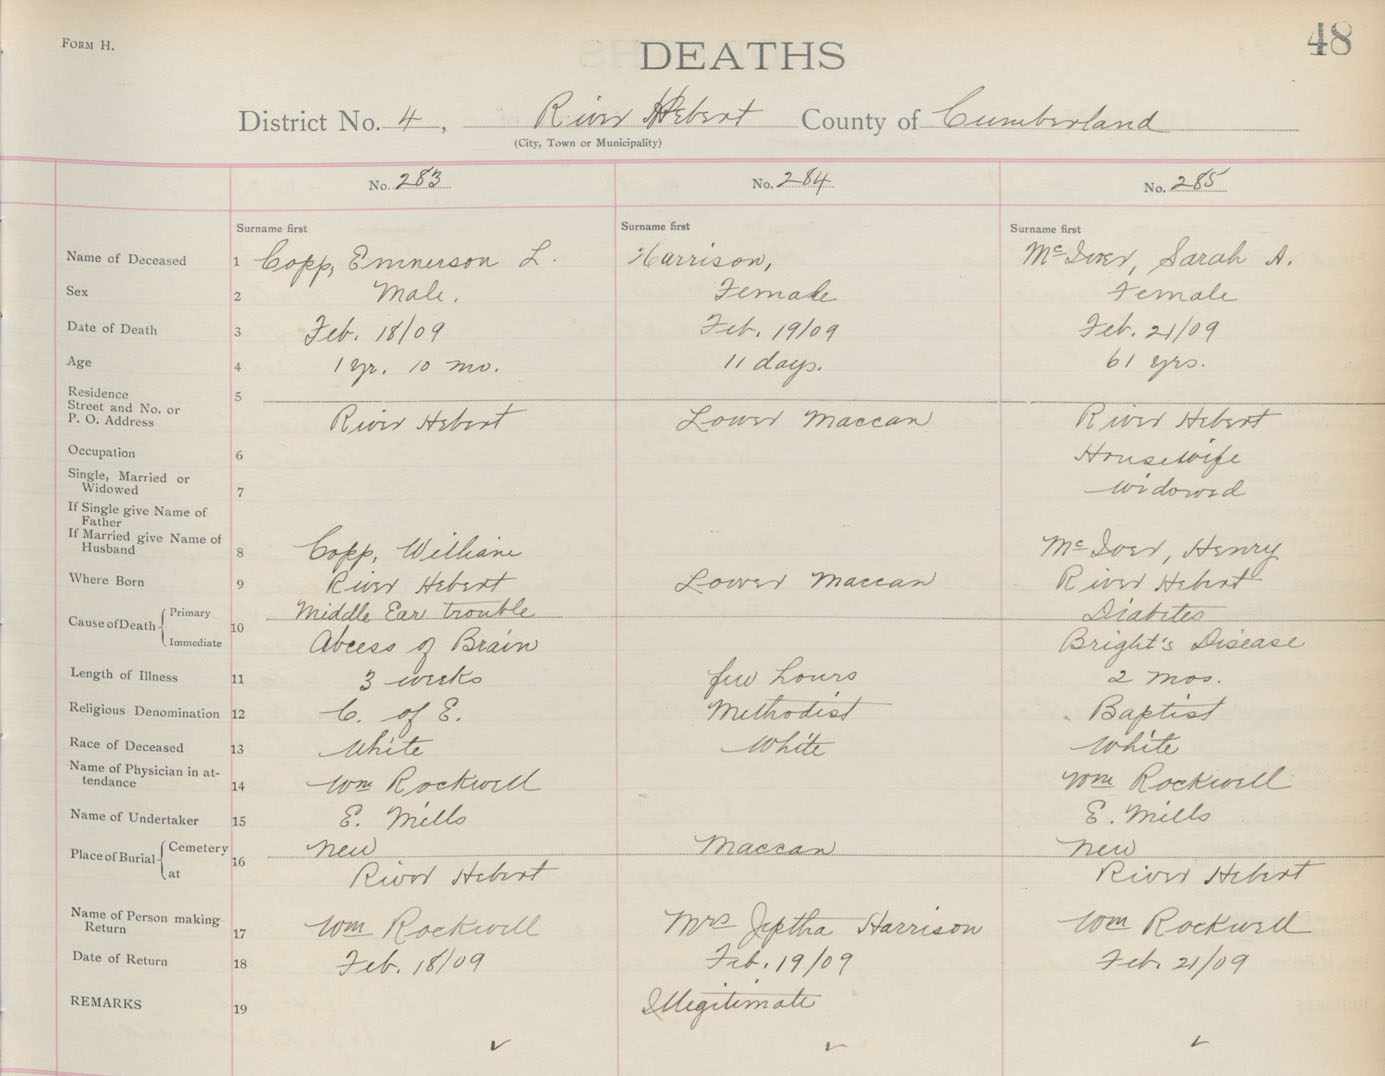 Form H.
48
DEATHS
District No. 4, River Hebert County of Cumberland
(City, Town or Municipality)
No. 283 No. 284 No. 285
Surname first Surname first Surname first
Name of Deceased 1 Copp, Emnerson L. Harrison, McIver, Sarah A.
Sex 2 Male. Female Female
Date of Death 3 Feb. 18/09 Feb. 19/09 Feb. 21/09
Age 4 1 yr. 10 mo. 11 days. 61 yrs.
Residence 5
Street and No. or
P. O. Address River Hebert Lower Maccan River Hebert
Occupation 6 Housewife
Single, Married or
Widowed 7 Widowed
If Single give Name of
Father
If Married give Name of
Husband 8 Copp, William McIver, Henry
Where Born 9 River Hebert Lower Maccan River Hebert
Cause of Death Primary 10 Middle Ear trouble Diabetes
Immediate Abcess of Brain Bright's Disease
Length of Illness 11 3 weeks few hours 2 mos.
Religious Denomination 12 C. of E. Methodist Baptist
Race of Deceased 13 White White White
Name of Physician in at-
tendance 14 Wm Rockwell Wm Rockwell
Name of Undertaker 15 E. Mills E. Mills
Place of Burial Cemetery 16 New Maccan New
at River Hebert River Hebert
Name of Person making
Return 17 Wm Rockwell Mrs Jeptha Harrison Wm Rockwell
Date of Return 18 Feb. 18/09 Feb. 19/09 Feb. 21/09
REMARKS 19 Illegitimate